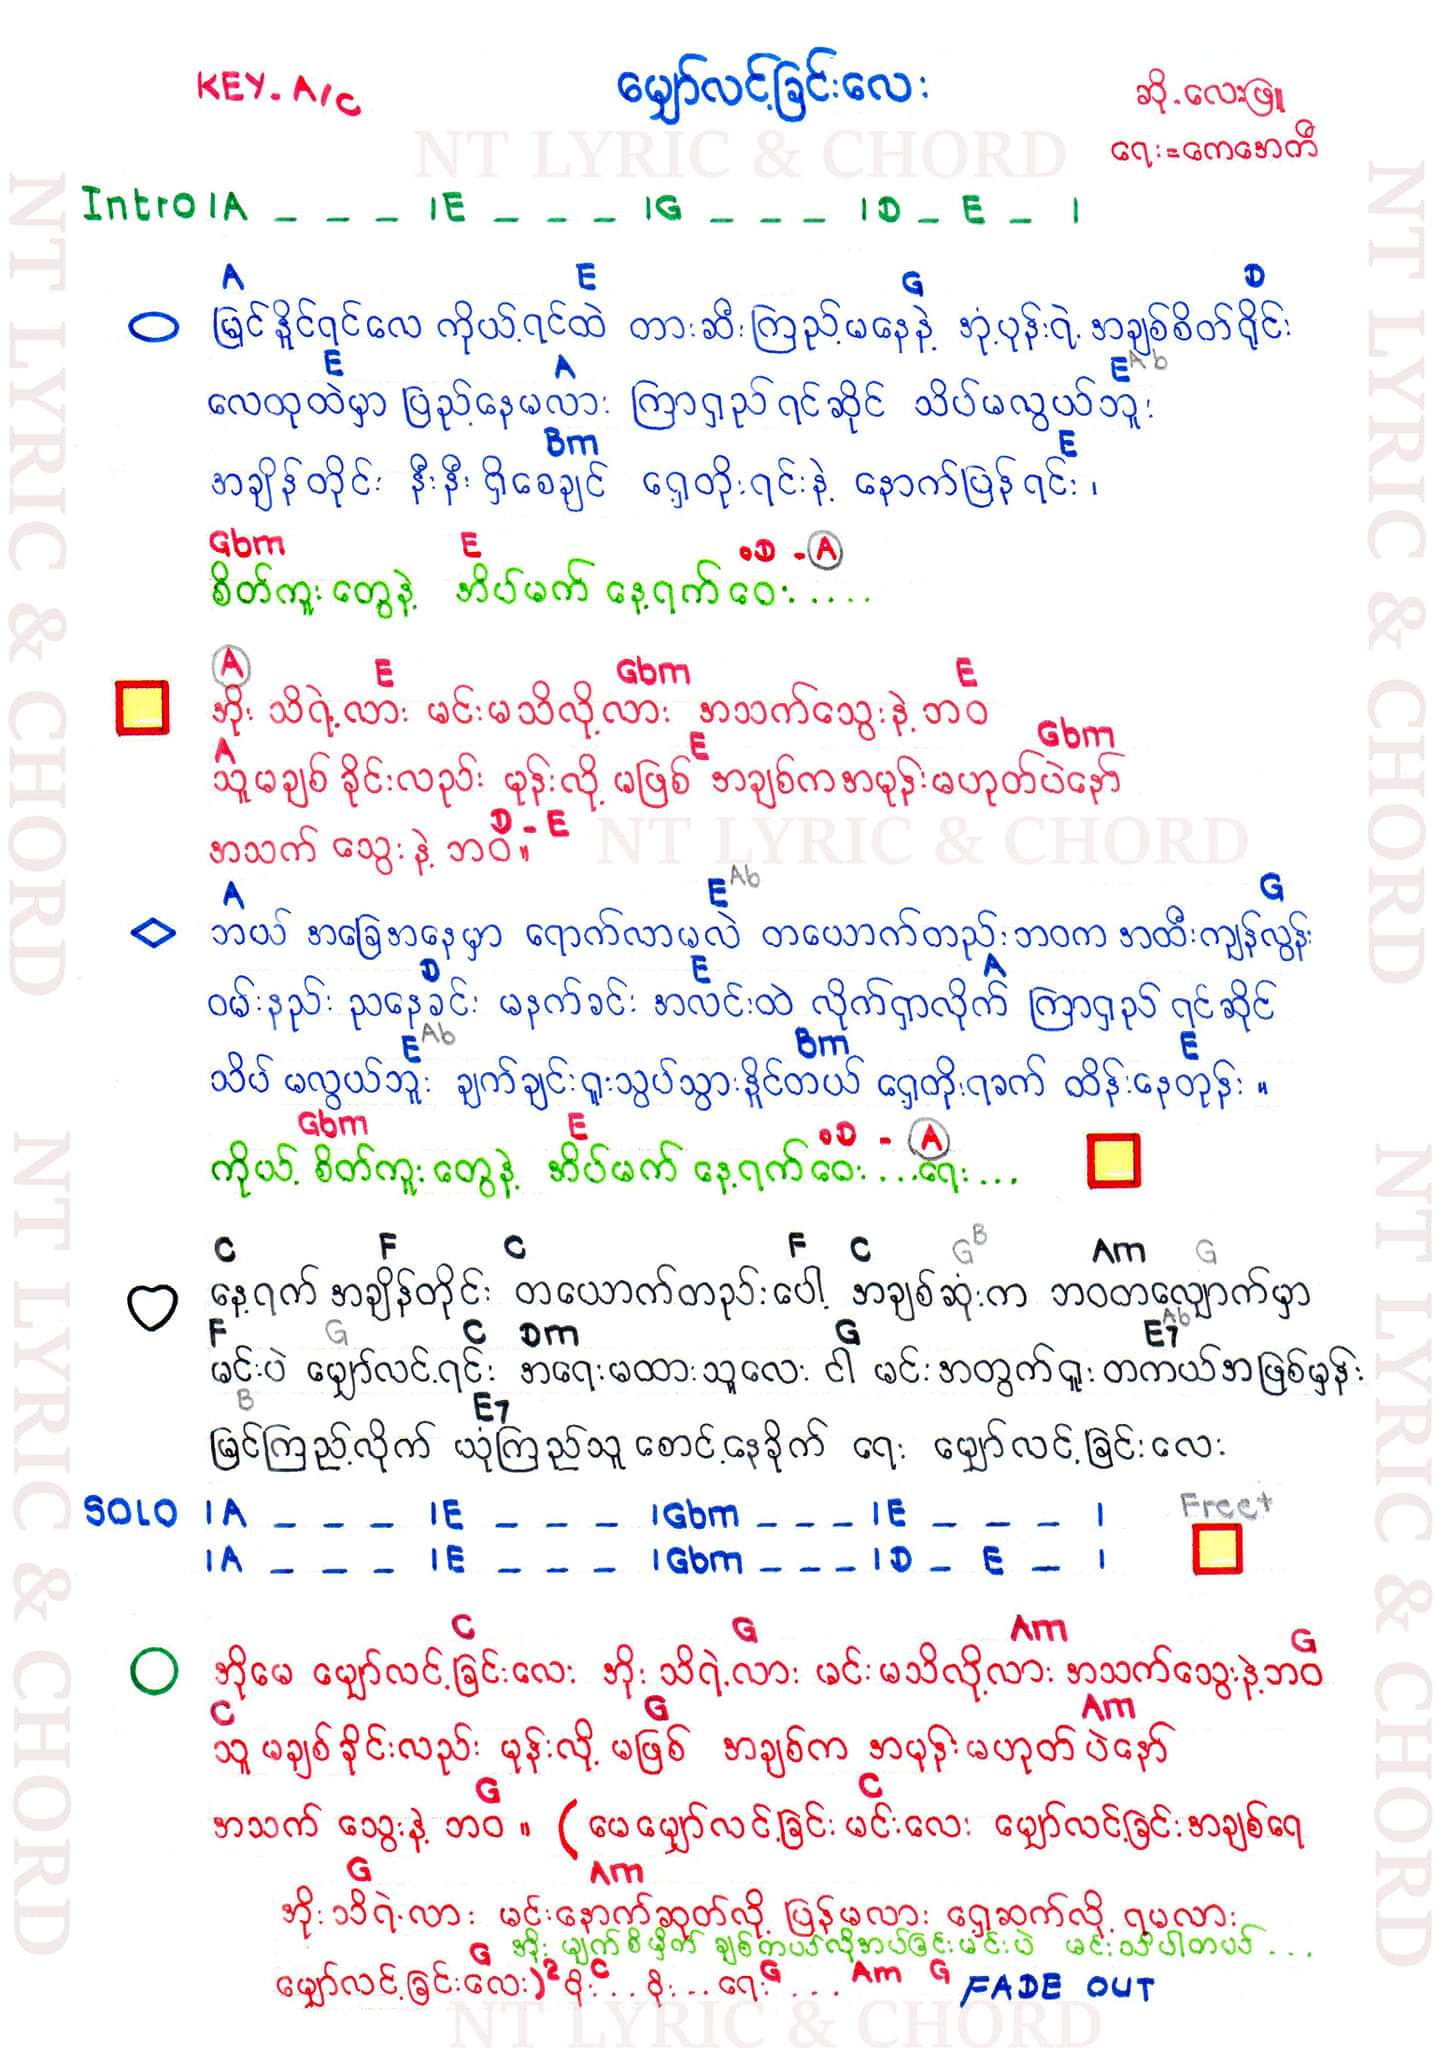 KEY. A/C
မျှော်လင့်ခြင်းလေး
ဆို-လေးဖြူ
ရေး=ကေအေတီ
NT LYRIC & CHORD
Intro |A _ _ _ |E _ _ _ |G _ _ _ |D _ E _ |
A E G D
မြင်နိုင်ရင်လေ ကိုယ့်ရင်ထဲ တားဆီးကြည့်မနေနဲ့ အုံ့ပုန်းရဲ့ အချစ်စိတ်ရိုင်း
E A E Ab
လေထုထဲမှာ ပြည့်နေမလား ကြာရှည်ရင်ဆိုင် သိပ်မလွယ်ဘူး
Bm E
အချိန်တိုင်း နီးနီးရှိစေချင် ရှေ့တိုးရင်းနဲ့ နောက်ပြန်ရင်း၊
Gbm E •D - A
စိတ်ကူးတွေနဲ့ အိပ်မက် နေ့ရက်ဝေး....
A E Gbm E
အိုး သိရဲ့လား မင်းမသိလို့လား အသက်သွေးနဲ့ဘဝ
A E Gbm
သူမချစ်ခိုင်းလည်း မုန်းလို့မဖြစ် အချစ်ကအမုန်းမဟုတ်ပဲနော်
D - E
အသက် သွေးနဲ့ ဘဝ။
NT LYRIC & CHORD
A E Ab G
ဘယ် အခြေအနေမှာ ရောက်လာမှလဲ တယောက်တည်းဘဝက အထီးကျန်လွန်း
D E A
ဝမ်းနည်း ညနေခင်း မနက်ခင်း အလင်းထဲ လိုက်ရှာလိုက် ကြာရှည် ရင်ဆိုင်
E Ab Bm E
သိပ် မလွယ်ဘူး ချက်ချင်းရူးသွပ်သွားနိုင်တယ် ရှေ့တိုးရခက် ထိန်းနေတုန်း။
Gbm E •D - A
ကိုယ့် စိတ်ကူးတွေနဲ့ အိပ်မက် နေ့ရက်ဝေး...ရေး...
C F C F C G B Am G
နေ့ရက်အချိန်တိုင်း တယောက်တည်းပေါ့ အချစ်ဆုံးက ဘဝတလျှောက်မှာ
F G C Dm G E7 Ab
မင်းပဲ မျှော်လင့်ရင်း အရေးမထားသူလေး ငါ မင်းအတွက်ရူး တကယ်အဖြစ်မှန်း
B E7
မြင်ကြည့်လိုက် ယုံကြည်သူ စောင့်နေခိုက် ရေး မျှော်လင့်ခြင်းလေး
SOLO |A _ _ _ |E _ _ _ |Gbm _ _ _ |E _ _ _ | Free+
|A _ _ _ |E _ _ _ |Gbm _ _ _ |D _ E _ |
C G Am G
အိုမေ မျှော်လင့်ခြင်းလေး အိုး သိရဲ့လား မင်းမသိလို့လား အသက်သွေးနဲ့ဘဝ
C G Am
သူမချစ်ခိုင်းလည်း မုန်းလို့မဖြစ် အချစ်က အမုန်းမဟုတ်ပဲနော်
G C
အသက် သွေးနဲ့ ဘဝ။ (မေမျှော်လင့်ခြင်း မင်းလေး မျှော်လင့်ခြင်းအချစ်ရေ
G Am
အိုးသိရဲ့လား မင်းနောက်ဆုတ်လို့ ပြန်မလား ရှေ့ဆက်လို့ ရမလား
အိုး မျက်စိမှိတ် ချစ်တယ်လိုအပ်ခြင်းမင်းပဲ မင်းသိပါတယ်...
G C G Am G
မျှော်လင့်ခြင်းလေး)² စိုး...စိုး...ရေး.... FADE OUT
NT LYRIC & CHORD
NT LYRIC & CHORD
NT LYRIC & CHORD
NT LYRIC & CHORD
NT LYRIC & CHORD